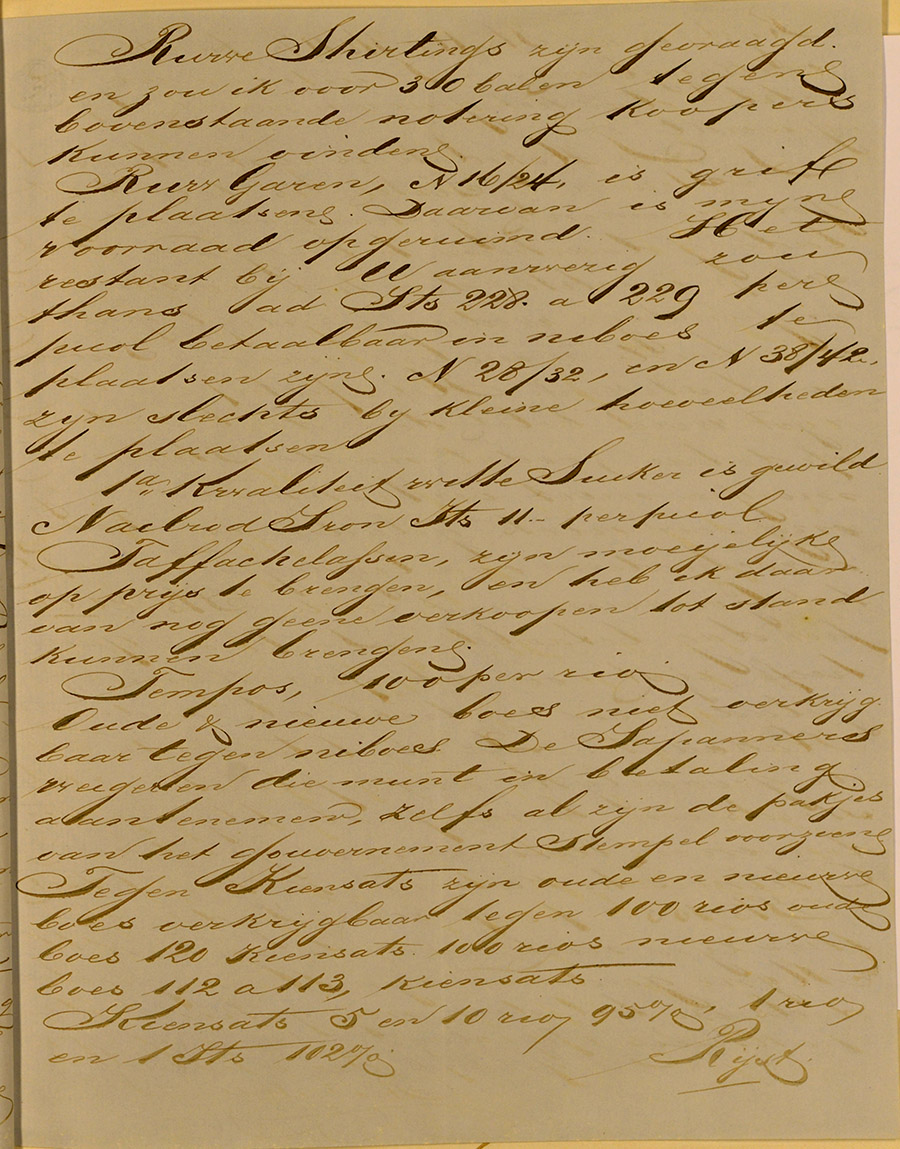 Ruwe Shirtings zijn gevraagd.
en zou ik voor 30 balen tegen
bovenstaande notering koopers
kunnen vinden.
Ruw Garen, N 16/24, is grif
te plaatsen. Daarvan is myn
voorraad opgeruimd. Het
restant bij U aanwezig zou
thans ad Sts 228. a 229 per
picol betaalbaar in niboes te
plaatsen zijn. N 28/32, en N 38/42,
zyn slechts by kleine hoeveelheden
te plaatsen
1a Kwaliteit witte Suiker is gewild
Nailrod Iron Sts 11.- per picol
Taffachelassen, zyn moeijelijk
op prijs te brengen, en heb ik daar
van nog geene verkoopen tot stand
kunnen brengen.
Tempos, 100 per rio
Oude & nieuwe boes niet verkrijg
baar tegen niboes De Japanners
weigeren die munt in betaling
aantenemen, zelfs al zijn de pakjes
van het gouvernement Stempel voorzien
Tegen Kiensats zijn oude en nieuwe
boes verkrijgbaar tegen 100 rios oude
boes 120 Kiensats. 100 rios nieuwe
boes 112 a 113, Kiensats
Kiensats 5 en 10 rio 95%, 1 rio
en 1 Sts 102%
Rijst.